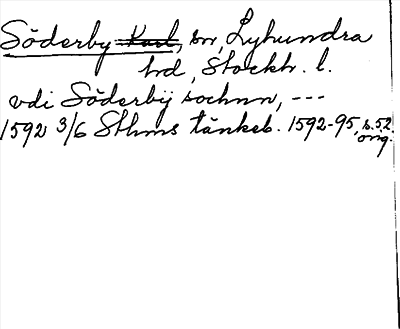 Söderby Karl, sn, Lyhundra
hd, Stockh. l.
vdi Söderbÿ sochnn, ---
1592 3/6 Sthms tänkeb. 1592-95, s. 52.
orig.